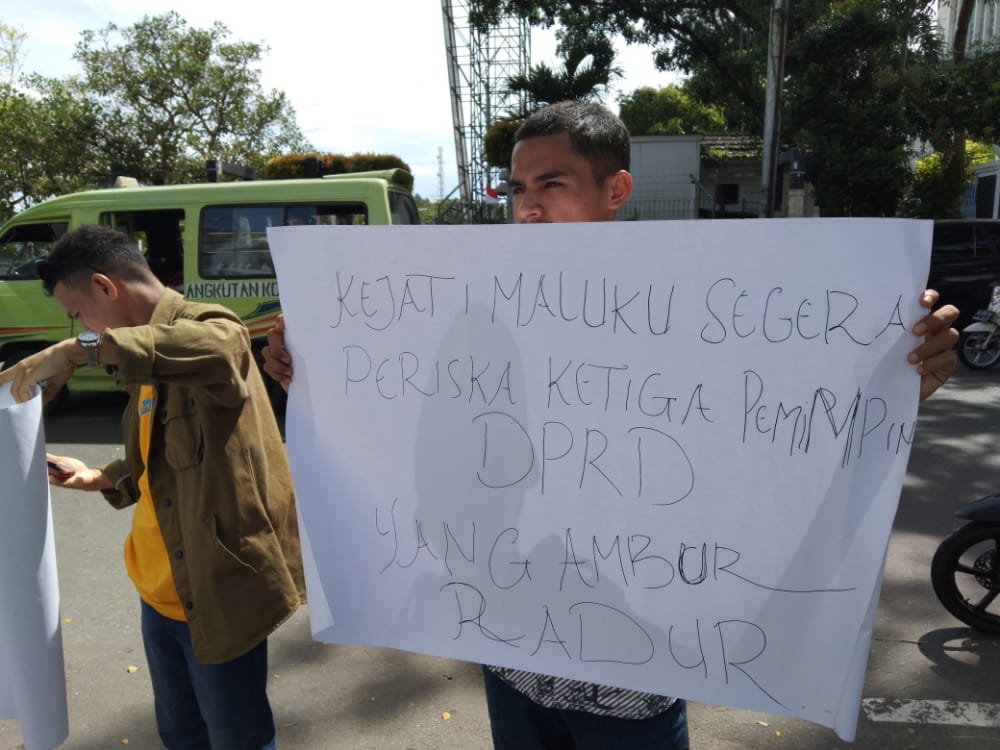 ANGKUTAN KO
KEJATI MALUKU SEGERA
PERISKA KETIGA PEMIMPIN
DPRD
YANG AMBUR
RADUR